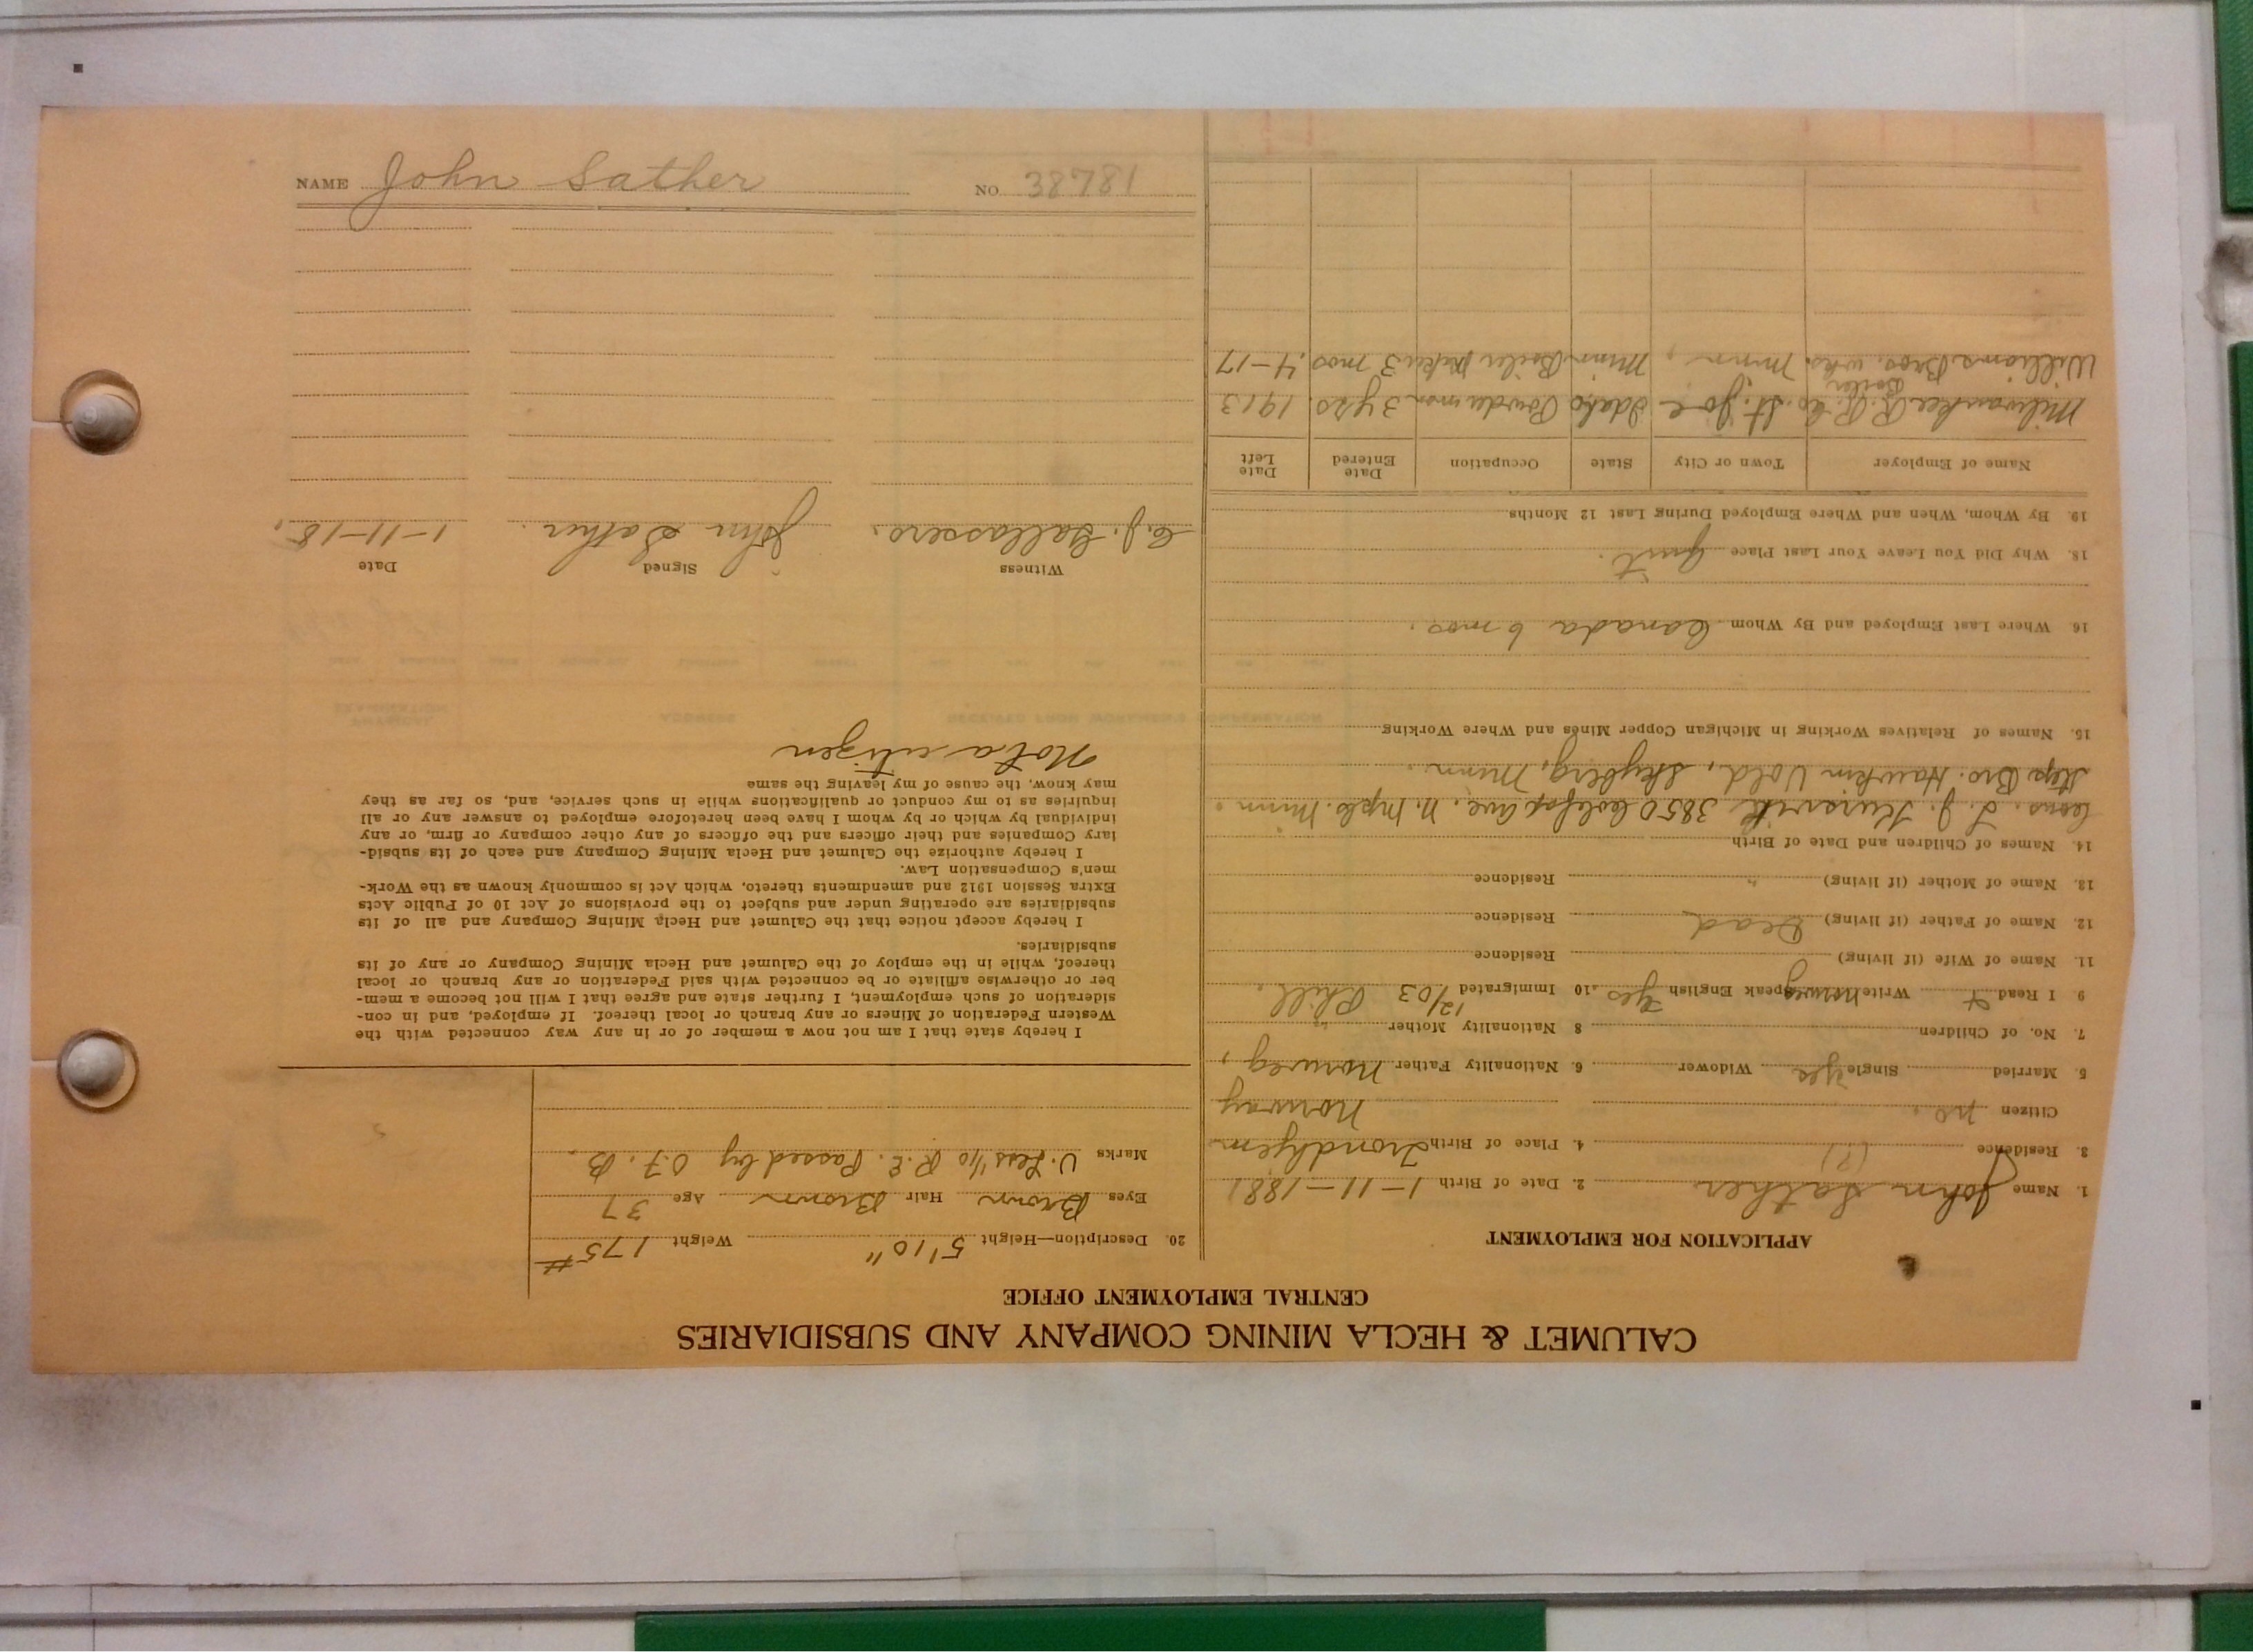 CALUMET & HECLA MINING COMPANY AND SUBSIDIARIES
CENTRAL EMPLOYMENT OFFICE
APPLICATION FOR EMPLOYMENT
1. Name John Sather 2. Date of Birth 1-11-1881
3. Residence (?) 4. Place of Birth Trondhjem
Citizen no. Norway
5. Married Single yes Widower 6. Nationality Father Norweg,
7. No. of Children 8 Nationality Mother "
9 I Read + Write Norweg Speak English Yes 10 Immigrated 12/03 Phill.
11. Name of Wife (if living) Residence
12. Name of Father (if living) Dead Residence
13. Name of Mother (if living) " Residence
14. Names of Children and Date of Birth
Cous. 3850 Colfax Ave. N. Mpls. Minn.
Step Bro. Vold, Skyberg, Minn.
15. Names of Relatives Working in Michigan Copper Mines and Where Working
16. Where Last Employed and By Whom Canada 6 mos.
18. Why Did You Leave Your Last Place Quit.
19. By Whom, When and Where Employed During Last 12 Months
Name of Employer Town or City State Occupation Date Entered Date Left
Milwaukee R.R. Co. St. Joe Idaho Powderman 3 yrs. 1913
Williams Bros. Boiler wks. Minn, Minn Boiler Maker 3 mos. 4-17
20. Description—Height 5'10" Weight 175#
Eyes Brown Hair Brown Age 37
Marks V. Less 1/10 R.E. Passed by O.F.B.
I hereby state that I am not now a member of or in any way connected with the
Western Federation of Miners or any branch or local thereof. If employed, and in con-
sideration of such employment, I further state and agree that I will not become a mem-
ber or otherwise affiliate or be connected with said Federation or any branch or local
thereof, while in the employ of the Calumet and Hecla Mining Company or any of its
subsidiaries.
I hereby accept notice that the Calumet and Hecla Mining Company and all of its
subsidiaries are operating under and subject to the provisions of Act 10 of Public Acts
Extra Session 1912 and amendments thereto, which Act is commonly known as the Work-
men's Compensation Law.
I hereby authorize the Calumet and Hecla Mining Company and each of its subsid-
iary Companies and their officers and the officers of any other company or firm, or any
individual by which or by whom I have been heretofore employed to answer any or all
inquiries as to my conduct or qualifications while in such service, and, so far as they
may know, the cause of my leaving the same
Not a citizen
Witness Signed Date
C.J. Gallassero. John Sather. 1-11-18.
NAME John Sather NO. 38781